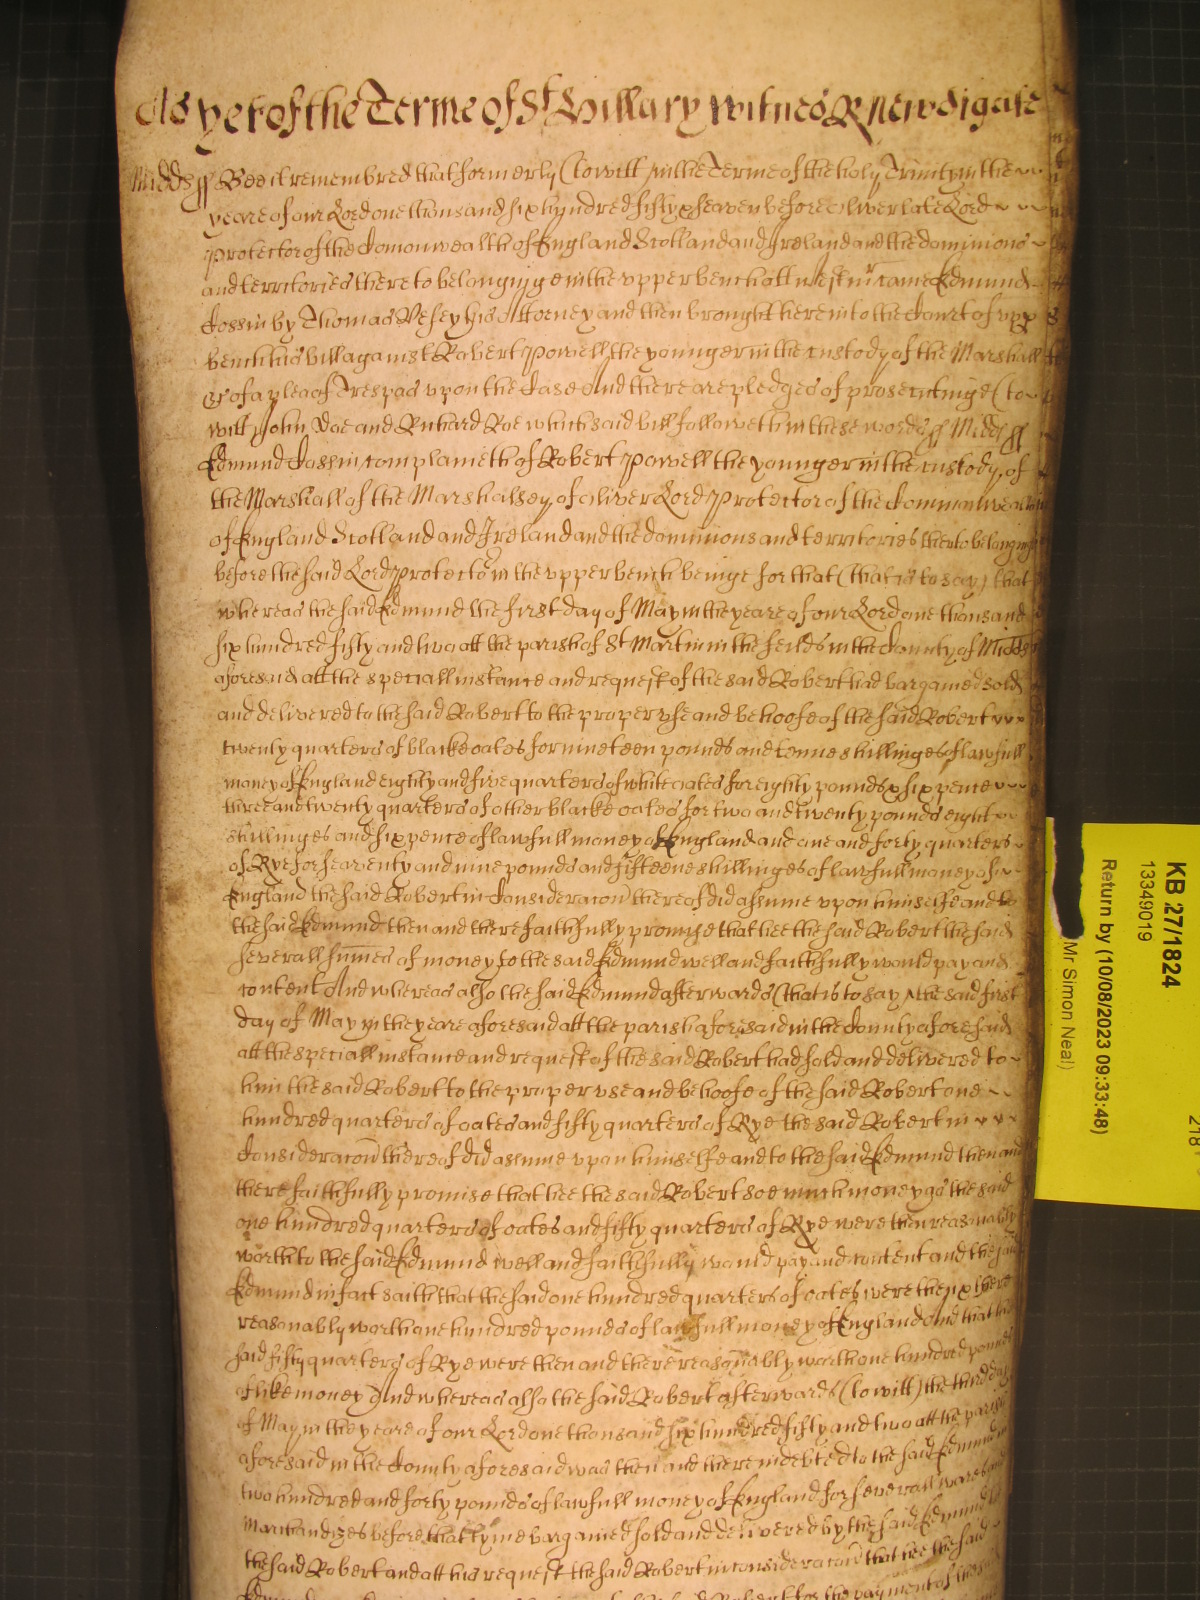 As yet of the Terme of St Hillary witnes R Newdigate
Midds ss Bee it remembred that formerly (to witt) in the Terme of the holy Trinity in the
yeare of our Lord one thousand six hundred fifty & seaven before Oliver late Lord
Protector of the Comonwealth of England Scotland and Ireland and the dominions
and territories thereto belonginge in the upper bench att Westmr came Edmund
Cossin by Thomas Vesey his Attorney and then brought here into the Court of upp
bench his bill against Robert Powell the younger in the custody of the Marshall
&c of a plea of Trespas upon the Case And there are pledges of prosecutinge (to
witt) John Doe and Richard Roe which said bill followeth in these words ss Midd ss
Edmund Cossin complaineth of Robert Powell the younger in the custody of
the Marshall of the Marshalsey of Oliver Lord Protector of the Commonwealth
of England Scotland and Ireland and the dominions and territories thereto belonging
before the said Lord Protector in the upper bench beinge for that (that is to say) that
whereas the said Edmund the first day of May in the yeare of our Lord one thousand
six hundred fifty and two att the parish of St Martin in the feilds in the County of Midds
aforesaid att the speciall instance and request of the said Robert had bargained sold
and delivered to the said Robert to the proper use and behoofe of the said Robert
twenty quarters of blacke oates for nineteen pounds and tenne shillinges of lawfull
money of England eighty and five quarters of white oates for eighty pounds & six pence
three and twenty quarters of other blacke oates for two and twenty pounds eight
shillinges and six pence of lawfull money of England and one and forty quarters
of Rye for seaventy and nine pounds and fifteene shillinges of lawfull money of
England the said Robert in Consideracon thereof did assume upon himselfe and to
the said Edmund then and there faithfully promise that hee the said Robert the said
severall summes of money to the said Edmund well and faithfully would pay and
content And whereas also the said Edmund afterwards (that is to say) the said first
day of May in the yeare aforesaid att the parish aforesaid in the County aforesaid
att the speciall instance and request of the said Robert had sold and delivered to
him the said Robert to the proper use and behoofe of the said Robert one
hundred quarters of oates and fifty quarters of Rye the said Robert in
Consideracon thereof did assume upon himselfe and to the said Edmund then and
there faithfully promise that hee the said Robert soe much money as the said
one hundred quarters of oates and fifty quarters of Rye were then reasonably
worth to the said Edmund well and faithfully would pay and content and the said
Edmund in fact saith that the said one hundred quarters of oates were then & there
reasonably worth one hundred pounds of lawfull money of England And that the
said fifty quarters of Rye were then and there reasonably worth one hundred pounds
of like money And whereas also the said Robert afterwards (to witt) the third day
of May in the yeare of our Lord one thousand six hundred fifty and two att the parish
aforesaid in the County aforesaid was then and there indebted to the said Edmund in
two hundred and forty pounds of lawfull money of England for severall wares and
Marchandizes before that tyme bargained sold and delivered by the said Edmund to
the said Robert and att his request the said Robert in consideracon that hee the said
KB 27/1824
13349019
Return by (10/08/2023 09:33:48)
Mr Simon Neal)